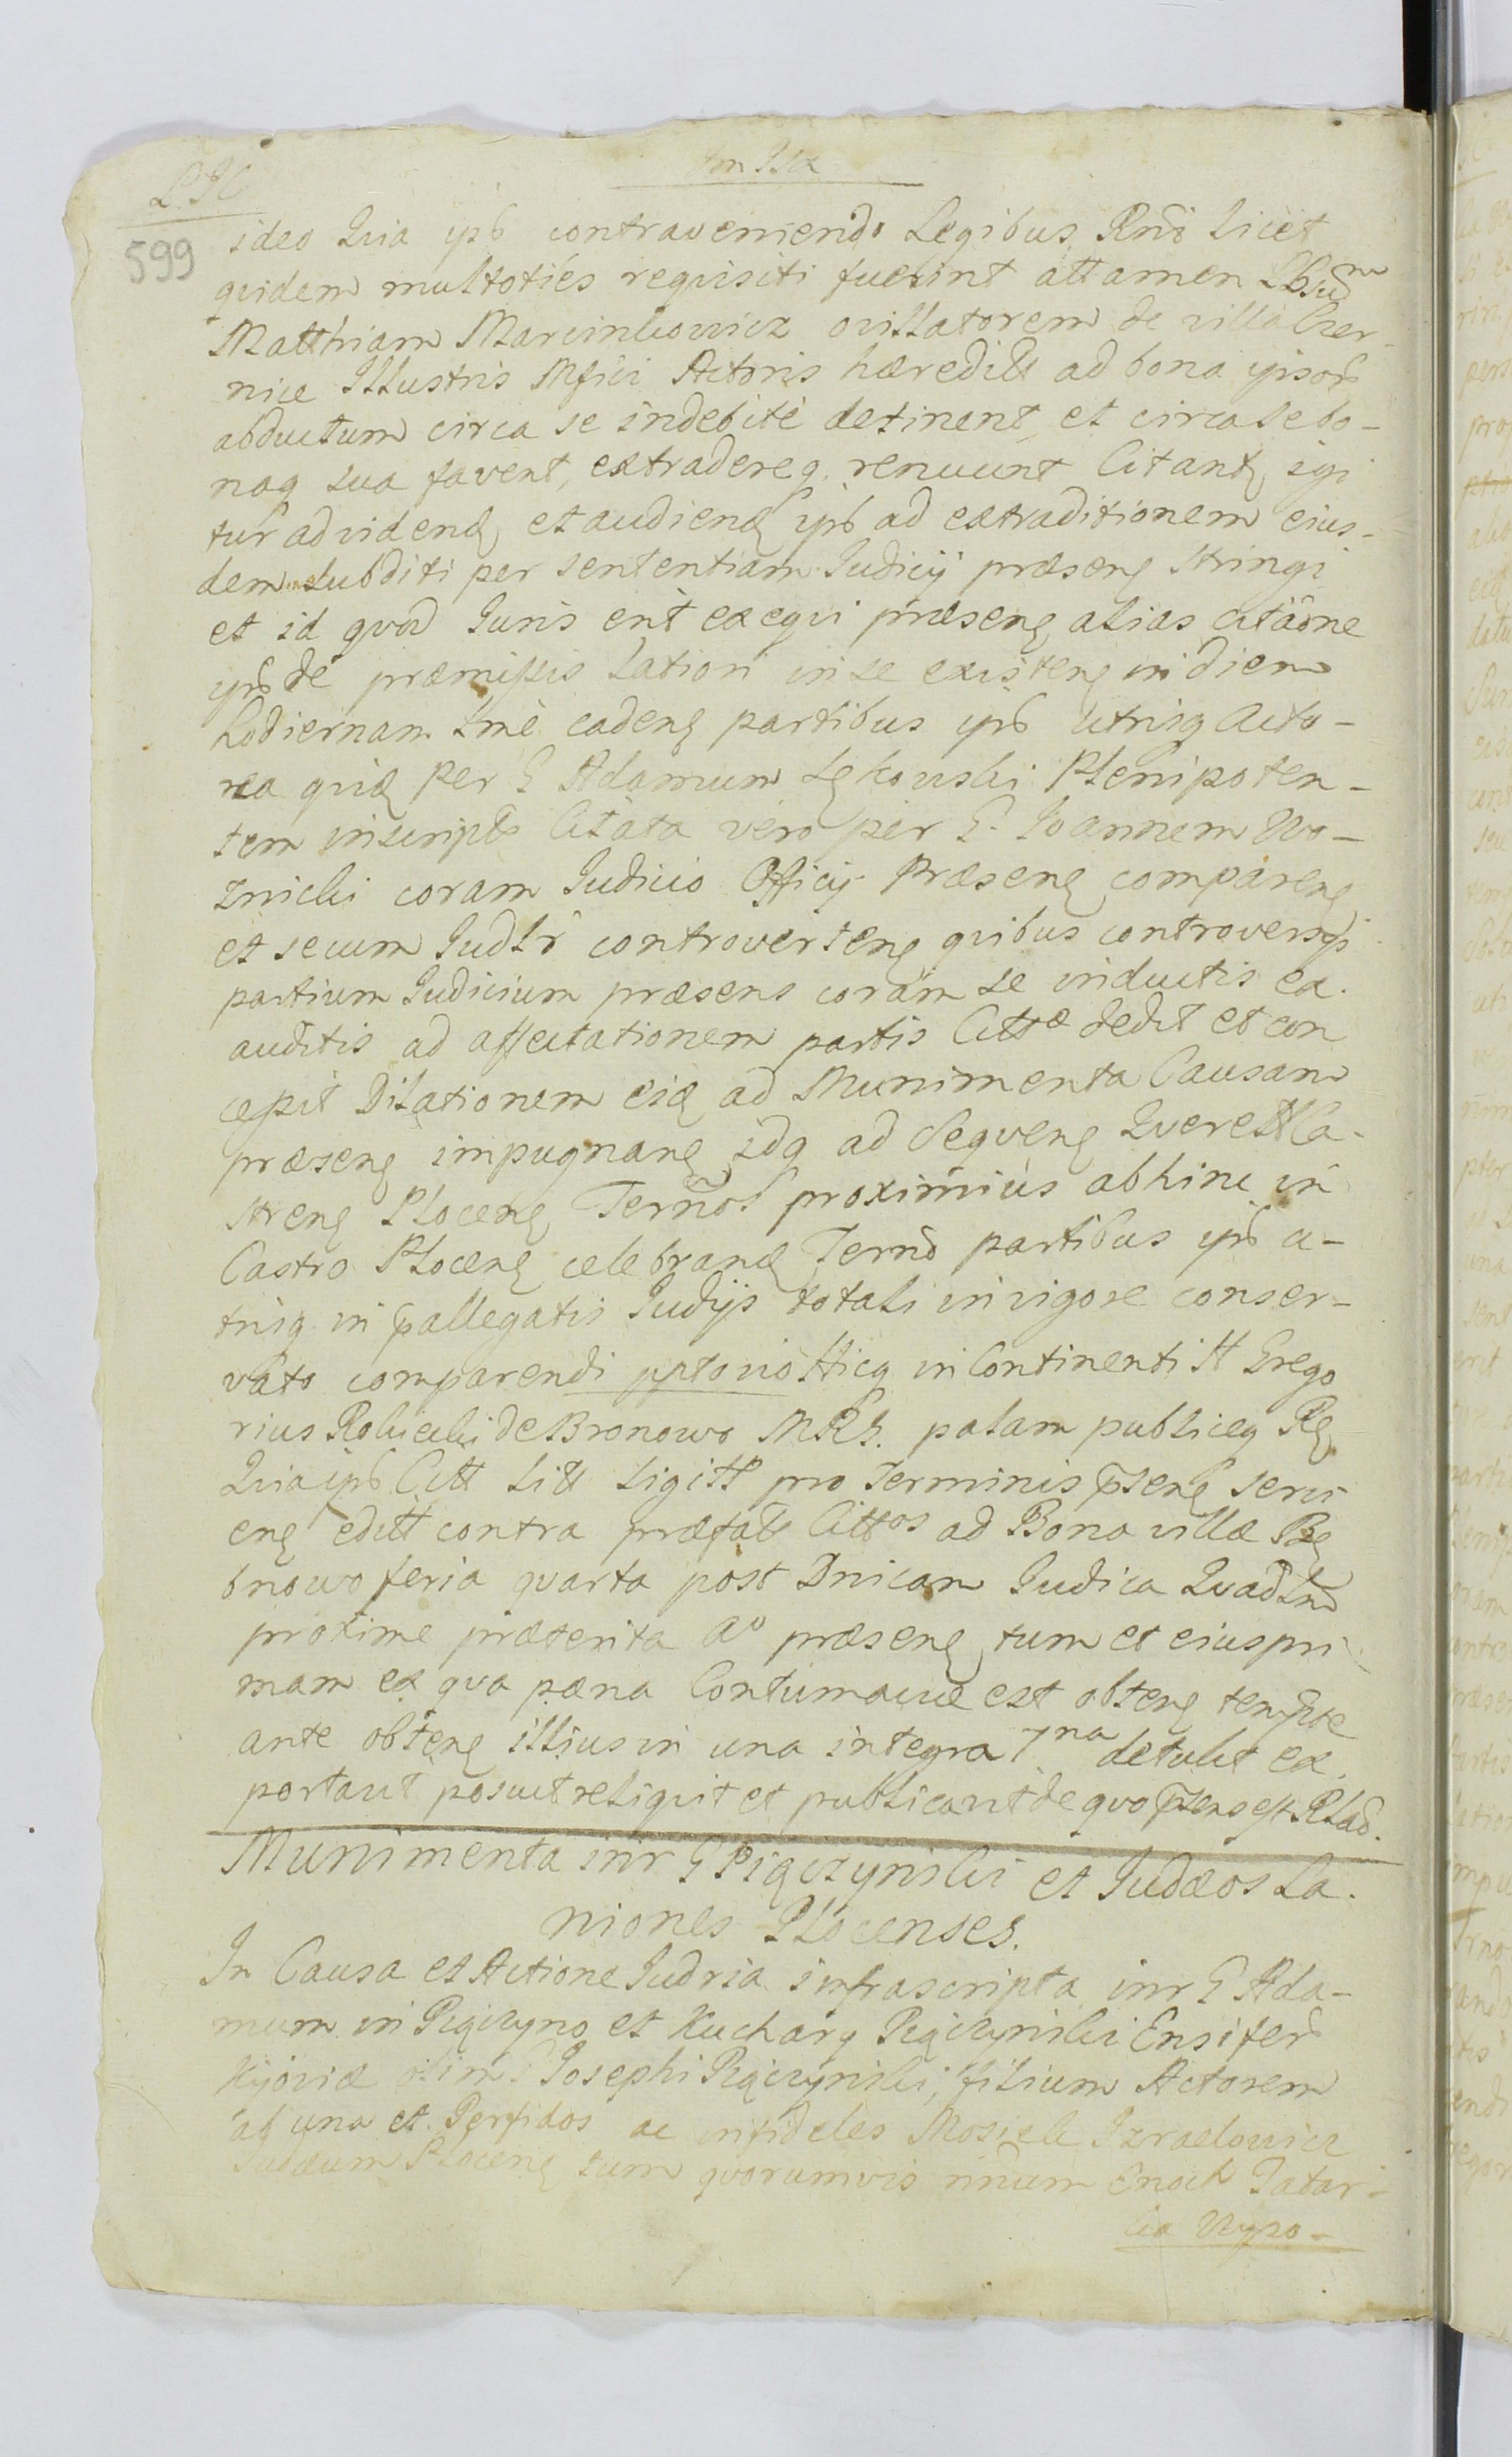 599
ideo Quia ipsi contraveniendo Legibus Regni Licet
quidem multoties requisiti fuerint attamen
Matthiam Marcinkowicz ovillatorem de villa Czer-
nice Illustris Mgfici Actoris hæredit ad bona ipsor
abductum circa se indebite detinent, et circa se bo-
naq sua favent, extradereq. renuunt Citantę igi
tur ad videnę et audienę ipś ad extraditionem eius-
dem subditi per sententiam Judicij præsenę stringi
et id quod Juris erit exequi præsenę alias citaõne
ipś de præmissis Latiori in se existenę in diem
hodiernam Lmè cadenę partibus ipś Utrisq Acto-
rea quidę per G Adamum Lękowski Plenipoten-
tem inscript Citata vero per G. Joannem Wo-
znicki coram Judicio Officij Præsenę comparenę
et secum Judlr controvertenę quibus controversijs
partium Judicium præsens coram se inductis ex-
auditis ad affectationem partis Cittæ dedit et con
cepit Dilationem eidę ad Munimenta Causam
præsenę impugnanę idq ad Sequenę Querel Ca-
strenę Plocenę Termos proximius abhinc in
Castro Plocenę celebrandę Termõ partibus ipś u-
trisq in pallegatis Judijs totali in vigore conser-
vato comparendi Hicq in Continenti H Grego
rius Rokicki de Bronowo MRG. palam publiceq Rę
Quia ipś Citt Litt Ligitt pro Terminis pñsenę servi
enę editt contra præfat Cittos ad Bona villæ Bę
bnowo feria quarta post Dnicam Judica Quadlm
proxime præterita Aº præsenę tum et eius pri
mam ex qua pæna Contumaciæ est obtenę tempõe
ante obtenę illius in una integra 7na detulit ex-
portavit posuit reliquit et publicavit de quo pñsens est Rlaõ.
Munimenta inr G Piączynski et Judæos La-
niones Plocenses.
In Causa et Actione Judria infrascripta inr G Ada-
mum in Piączyno et Kuchary Piączynski Ensifer
Kijoviæ olim G Josephi Piączynski, filium Actorem
ab una et Perfidos ac infideles Mosiek Izraelowicz
Judæum Plocenę tum quorumvis nñum Enoch Tatar-